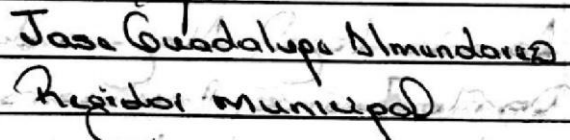 Jose Guadalupe Almendarez
Regidor Municipal